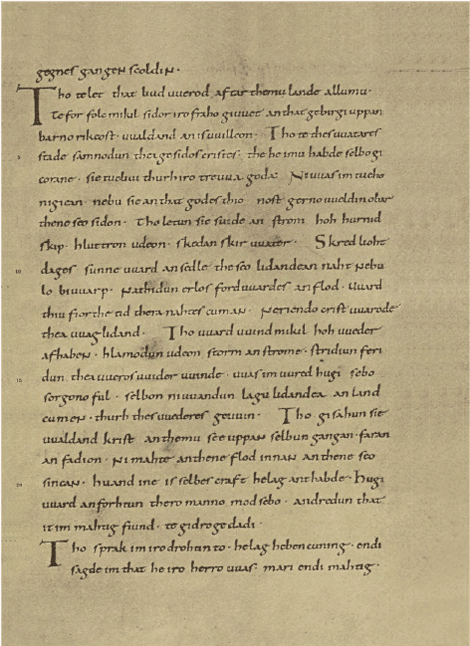 gegnes gangen scoldin.
Tho telet that liud uuerod aftar themu lande allumu.
te for folc mikil sidor iro fraho giuuet an that gebirgi uppan
barno rikeost. uualdand an is uuilleon. Tho te thes uuatares
5 stade samnodun thea gesidos cristes. the he imu habde selbo gi
corane. sie tuelibi thurh iro treuua goda. Ni uuas im tueho
nigiean. nebu sie an that godes thio nost gerno uueldin obar
thene seo sidon. Tho letun sie suide an strom hoh hurnid
skip. hluttron udeon. skedan skir uuater. Skred lioht
10 dages sunne uuard an sedle the seo lidandean naht nebu
lo biuuarp. nathidun erlos forduuardes an flod. uuard
thiu fiorthe tid thera nahtes cuman. neriendo crist uuarode
thea uuaglidand. Tho uuard uuind mikil hoh uueder
afhaben. hlamodun udeon strom an strome. stridiun feri
15 dun thea uueros uuider uuinde. uuas im uured hugi sebo
sorgono ful. selbon ni uuandun lagu lidandea an land
cumen. thurh thes uuederes geuuin. Tho gisahun sie
uualdand krist an themu see uppan selbun gangan. faran
an fadion. ni mahte an thene flod innan an thene seo
20 sincan. huand ine is selbes craft helag anthabde. hugi
uuard an forhtun thero manno mod sebo. andredun that
it im mahtig fiund. te gidroge dadi.
Tho sprak im iro drohtin to. helag heben cuning. endi
sagde im that he iro herro uuas. mari endi mahtig.